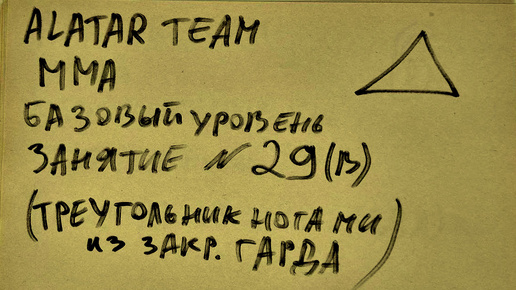 ALATAR TEAM
MMA
БАЗОВЫЙ УРОВЕНЬ
ЗАНЯТИЕ № 29 (В)
(ТРЕУГОЛЬНИК НОГАМИ
ИЗ ЗАКР. ГАРДА)